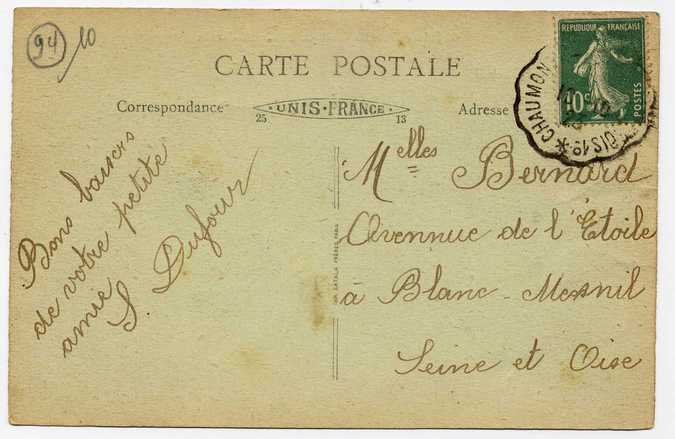 94/10
CARTE POSTALE
Correspondance
UNIS-FRANCE
25 13
Adresse
REPUBLIQUE FRANÇAISE
10c
POSTES
CHAUMON
OIS 1º
Bons baisers
de votre petite
amie
S Dufour
Melles Bernard
Avennue de l'Étoile
à Blanc-Mesnil
Seine et Oise